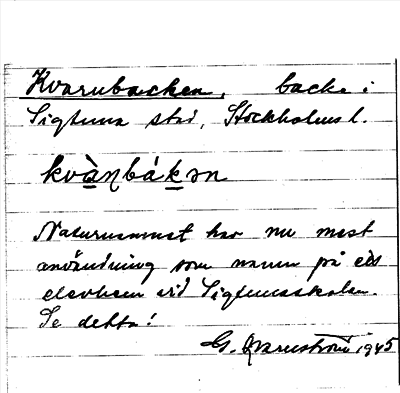 Kvarnbacken, backe i
Sigtuna stad, Stockholms l.
kvà̱ṇbáḵən
Naturnamnet har nu mest
användning som namn på ett
elevhem vid Sigtunaskolan.
Se detta!
G. Warnström 1945